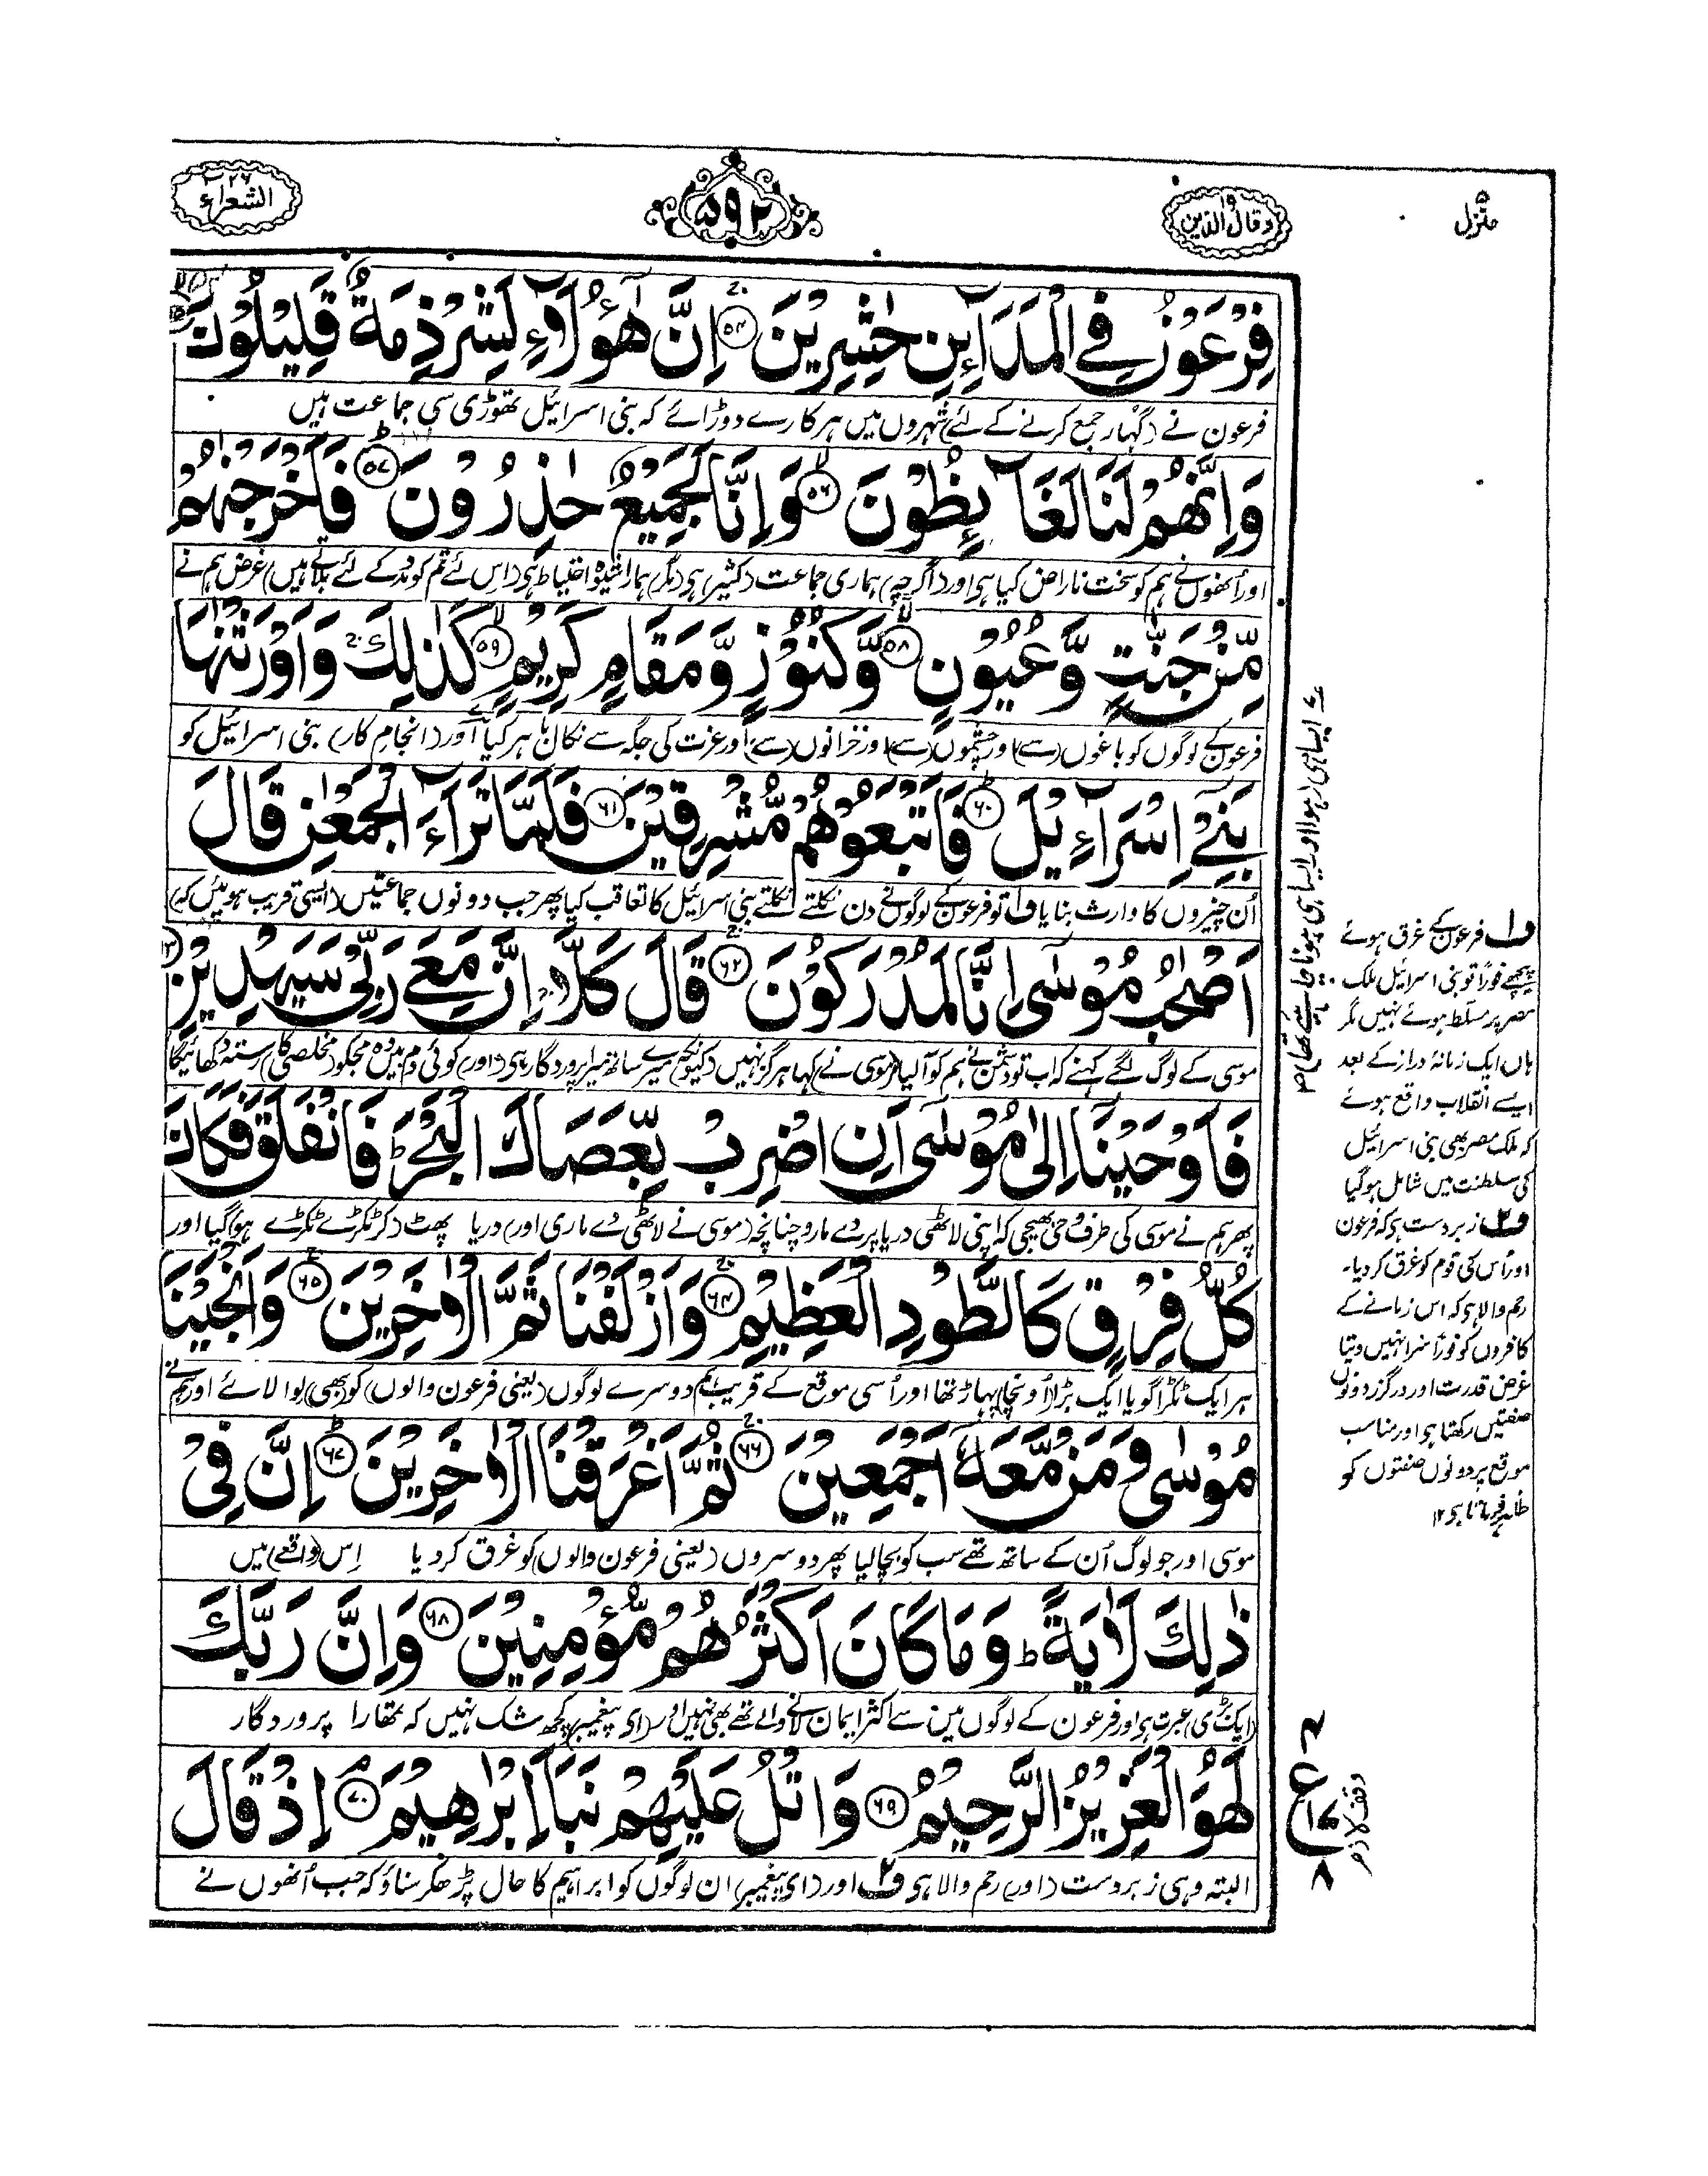 منزل ۵
وقال الذین ۱۹
۵۹۲
الشعراء ۲۶
فِرْعَوْنُ فِی الْمَدَآئِنِ حٰشِرِیْنَ ﴿۵۳﴾ اِنَّ هٰٓؤُلَآءِ لَشِرْذِمَةٌ قَلِیْلُوْنَ
فرعون نے (گہار جمع کرنے کے لئے) شہروں میں ہرکارے دوڑائے کہ بنی اسرائیل تھوڑی سی جماعت ہیں
وَاِنَّهُمْ لَنَا لَغَآئِظُوْنَ ﴿۵۶﴾ وَاِنَّا لَجَمِیْعٌ حٰذِرُوْنَ ﴿۵۷﴾ فَاَخْرَجْنٰهُمْ
اور اُنھوں نے ہم کو سخت ناراض کیا ہی اور (اگرچہ) ہماری جماعت (کثیر) ہی (مگر) ہمارا شیوہ احتیاط ہی (اس لئے تم کو مدد کے لئے بلاتے ہیں) غرض ہم نے
مِّنْ جَنّٰتٍ وَّعُیُوْنٍ ﴿۵۸﴾ وَّكُنُوْزٍ وَّمَقَامٍ كَرِیْمٍ ﴿۵۹﴾ كَذٰلِكَ وَاَوْرَثْنٰهَا
فرعون کے لوگوں کو باغوں (سے) اور چشموں (سے) اور خزانوں (سے) اور عزت کی جگہ سے نکال باہر کیا اور (انجام کار) بنی اسرائیل کو
بَنِیْٓ اِسْرَآءِیْلَ ﴿۶۰﴾ فَاَتْبَعُوْهُمْ مُّشْرِقِیْنَ ﴿۶۱﴾ فَلَمَّا تَرَآءَ الْجَمْعٰنِ قَالَ
اُن چیزوں کا وارث بنایا ف۱ تو فرعون کے لوگوں نے دن نکلتے نکلتے بنی اسرائیل کا تعاقب کیا پھر جب دونوں جماعتیں (ایسی قریب ہوئیں کہ)
اَصْحٰبُ مُوْسٰٓی اِنَّا لَمُدْرَكُوْنَ ﴿۶۲﴾ قَالَ كَلَّا اِنَّ مَعِیَ رَبِّیْ سَیَهْدِیْنِ
موسی کے لوگ لگے کہنے کہ اب تو دشمن نے ہم کو آلیا (موسی نے) کہا ہرگز نہیں (کیونکہ) میرے ساتھ میرا پروردگار ہی (اور) کوئی دم میں وہ مجکو (مخلصی کا) رستہ دکھائیگا
فَاَوْحَیْنَآ اِلٰی مُوْسٰٓی اَنِ اضْرِبْ بِّعَصَاكَ الْبَحْرَ فَانْفَلَقَ فَكَانَ
پھر ہم نے موسی کی طرف وحی بھیجی کہ اپنی لاٹھی دریا پر دے مارو چنانچہ (موسی نے لاٹھی دے ماری اور) دریا پھٹ (کر ٹکڑے ٹکڑے ہو) گیا اور
كُلُّ فِرْقٍ كَالطَّوْدِ الْعَظِیْمِ ﴿۶۴﴾ وَاَزْلَفْنَا ثَمَّ الْاٰخَرِیْنَ ﴿۶۵﴾ وَاَنْجَیْنَا
ہر ایک ٹکڑا گویا ایک بڑا (اونچا) پہاڑ تھا اور اُسی موقع کے قریب ہم دوسرے لوگوں (یعنی فرعون والوں) کو (بھی) لوا لائے اور ہم نے
مُوْسٰی وَمَنْ مَّعَهٗٓ اَجْمَعِیْنَ ﴿۶۶﴾ ثُمَّ اَغْرَقْنَا الْاٰخَرِیْنَ ﴿۶۷﴾ اِنَّ فِیْ
موسی اور جو لوگ اُن کے ساتھ تھے سب کو بچالیا پھر دوسروں (یعنی فرعون والوں) کو غرق کردیا اِس (واقعے) میں
ذٰلِكَ لَاٰیَةً وَمَا كَانَ اَكْثَرُهُمْ مُّؤْمِنِیْنَ ﴿۶۸﴾ وَاِنَّ رَبَّكَ
(ایک بڑی) عبرت ہی اور فرعون کے لوگوں میں سے اکثر ایمان لانے والے تھے بھی نہیں اور (ای پیغمبر) کچھ شک نہیں کہ تمھارا پروردگار
لَهُوَ الْعَزِیْزُ الرَّحِیْمُ ﴿۶۹﴾ وَاتْلُ عَلَیْهِمْ نَبَاَ اِبْرٰهِیْمَ ﴿۷۰﴾ اِذْ قَالَ
البتہ وہی زبردست (اور) رحم والا ہی ف۲ اور (ای پیغمبر) ان لوگوں کو ابراہیم کا حال پڑھکر سناؤ کہ جب اُنھوں نے
ف۱ فرعون کے غرق ہوئے
پیچھے فوراً تو بنی اسرائیل ملک
مصر پر مسلط ہوئے نہیں مگر
ہاں ایک زمانۂ دراز کے بعد
ایسے انقلاب واقع ہوئے
کہ ملک مصر بھی بنی اسرائیل
کی سلطنت میں شامل ہوگیا
ف۲ زبردست ہی کہ فرعون
اور اُس کی قوم کو غرق کردیا۔
رحم والا ہی کہ اس زمانے کے
کافروں کو فوراً سزا نہیں دیتا
غرض قدرت اور درگزر دونوں
صفتیں رکھتا ہی اور مناسب
موقع پر دونوں صفتوں کو
ظاہر فرماتا ہی ۱۲
ایسا ہی (ہوا) اور ایسا ہی ہونا چاہیے تھا
ع ۱۷ ۸
وقف لازم